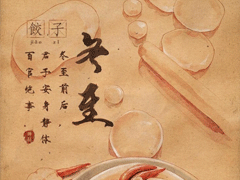 冬至
餃子
冬至前后
君子安身静体
百官绝事